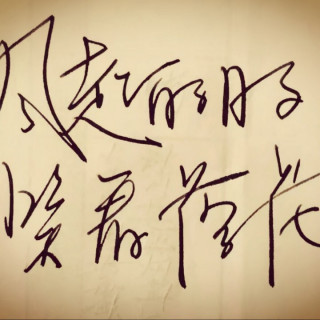 风起的日子
笑看落花